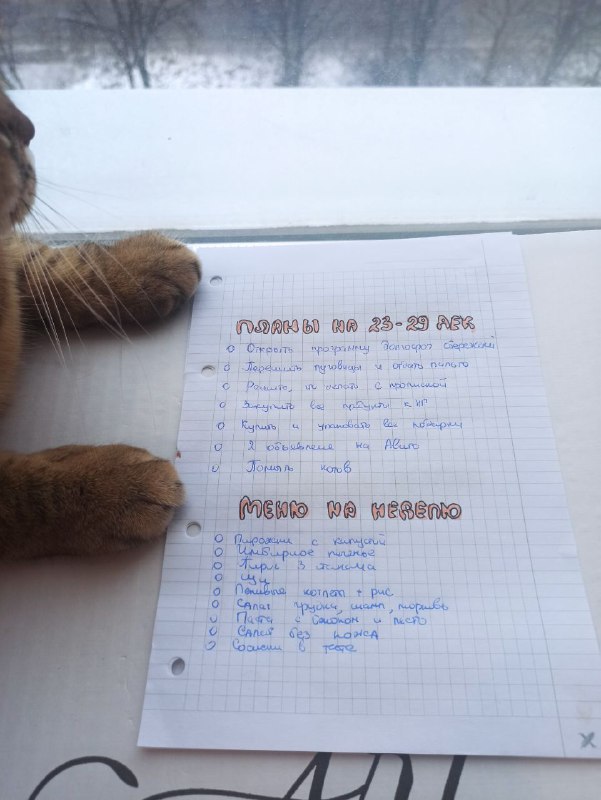 ПЛАНЫ НА 23-29 ДЕК
Открыть программу долгофоз сбережений
Перешить пуговицы и отдать пальто
Решить, чт делать с пропиской
Закупить все продукты к НГ
Купить и упаковать все подарки
2 объявления на Авито
Помыть котов
МЕНЮ НА НЕДЕЛЮ
Пирожки с капустой
Имбирное печенье
Пирог 3 
Щи
Ленивые котлеты + рис
Салат груши, шамп, морковь
Паста с беконом и песто
Салат без ножа
Сосиски в тесте
х